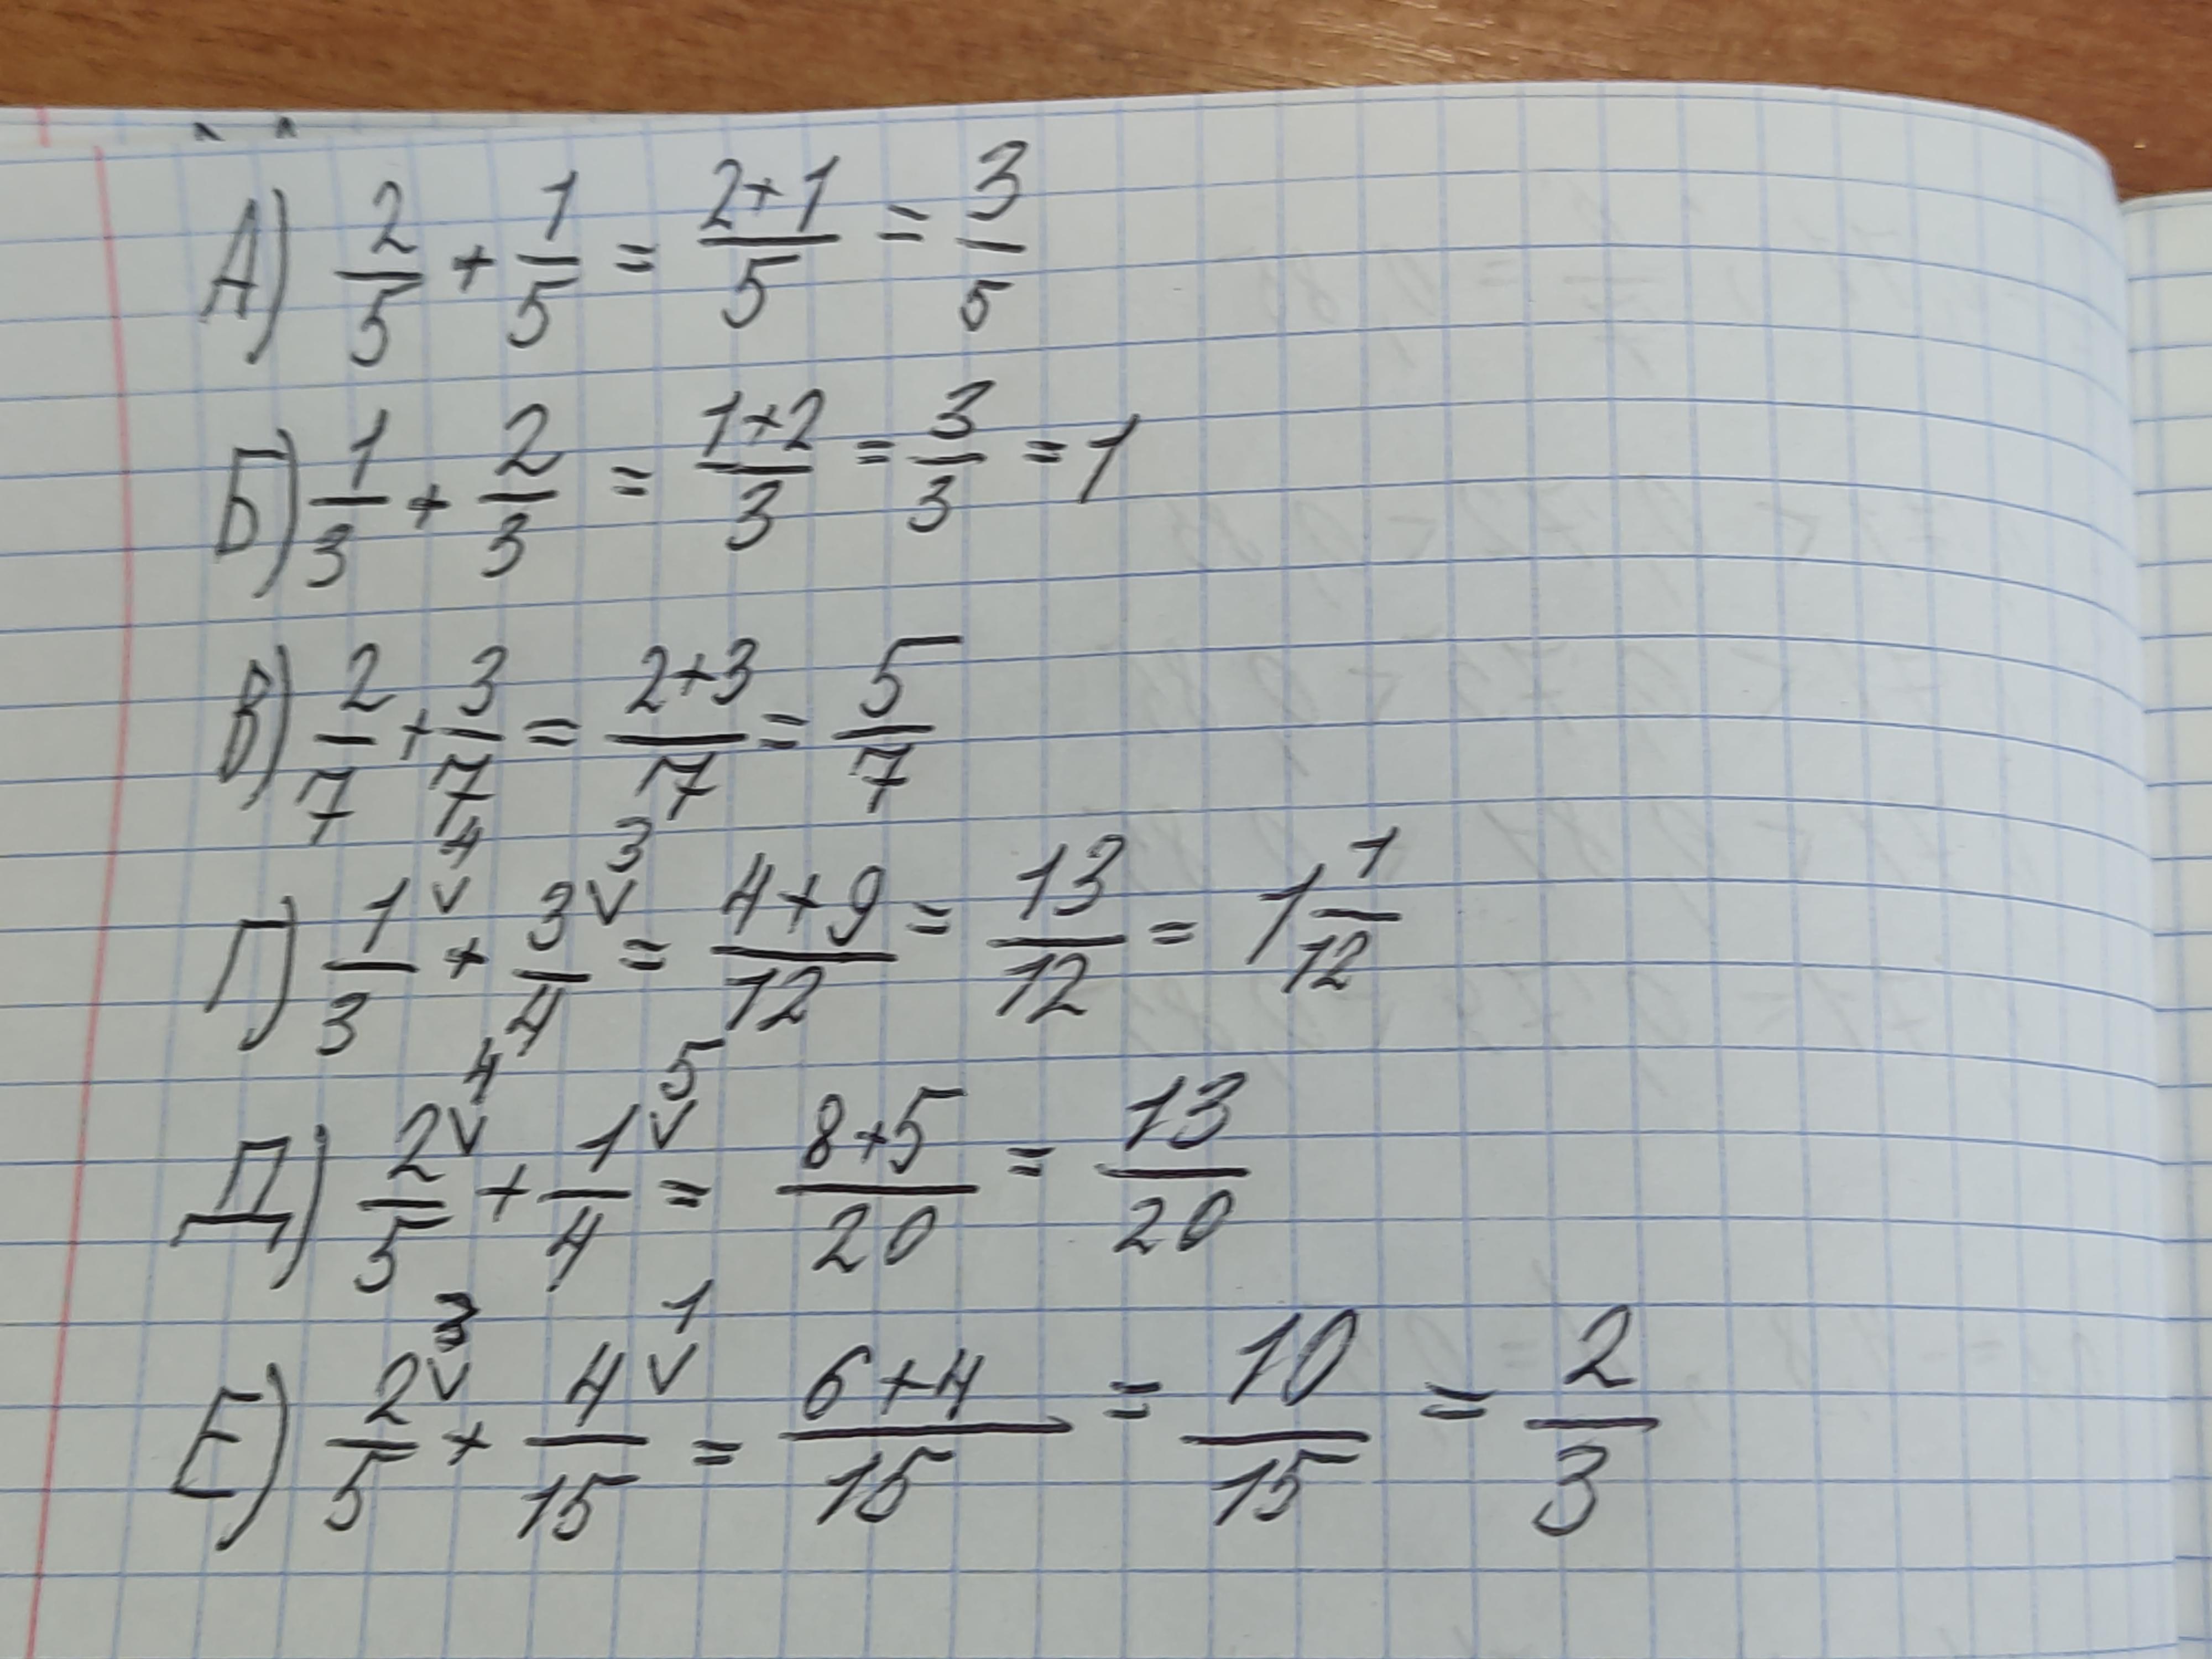 А) 2/5 + 1/5 = 2+1/5 = 3/5
Б) 1/3 + 2/3 = 1+2/3 = 3/3 = 1
В) 2/7 + 3/7 = 2+3/7 = 5/7
Г) 1/3 ⁴ + 3/4 ³ = 4+9/12 = 13/12 = 1 1/12
Д) 2/5 ⁴ + 1/4 ⁵ = 8+5/20 = 13/20
Е) 2/5 ³ + 4/15 ¹ = 6+4/15 = 10/15 = 2/3